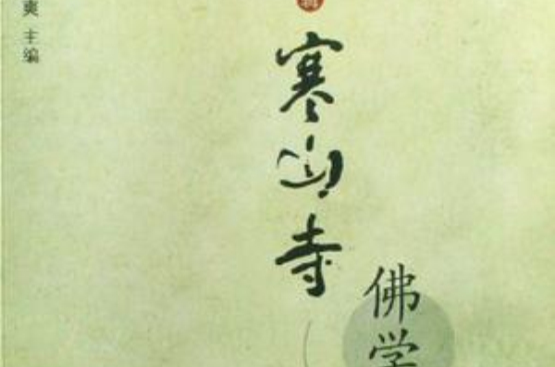 爽 主编
寒山寺
佛学